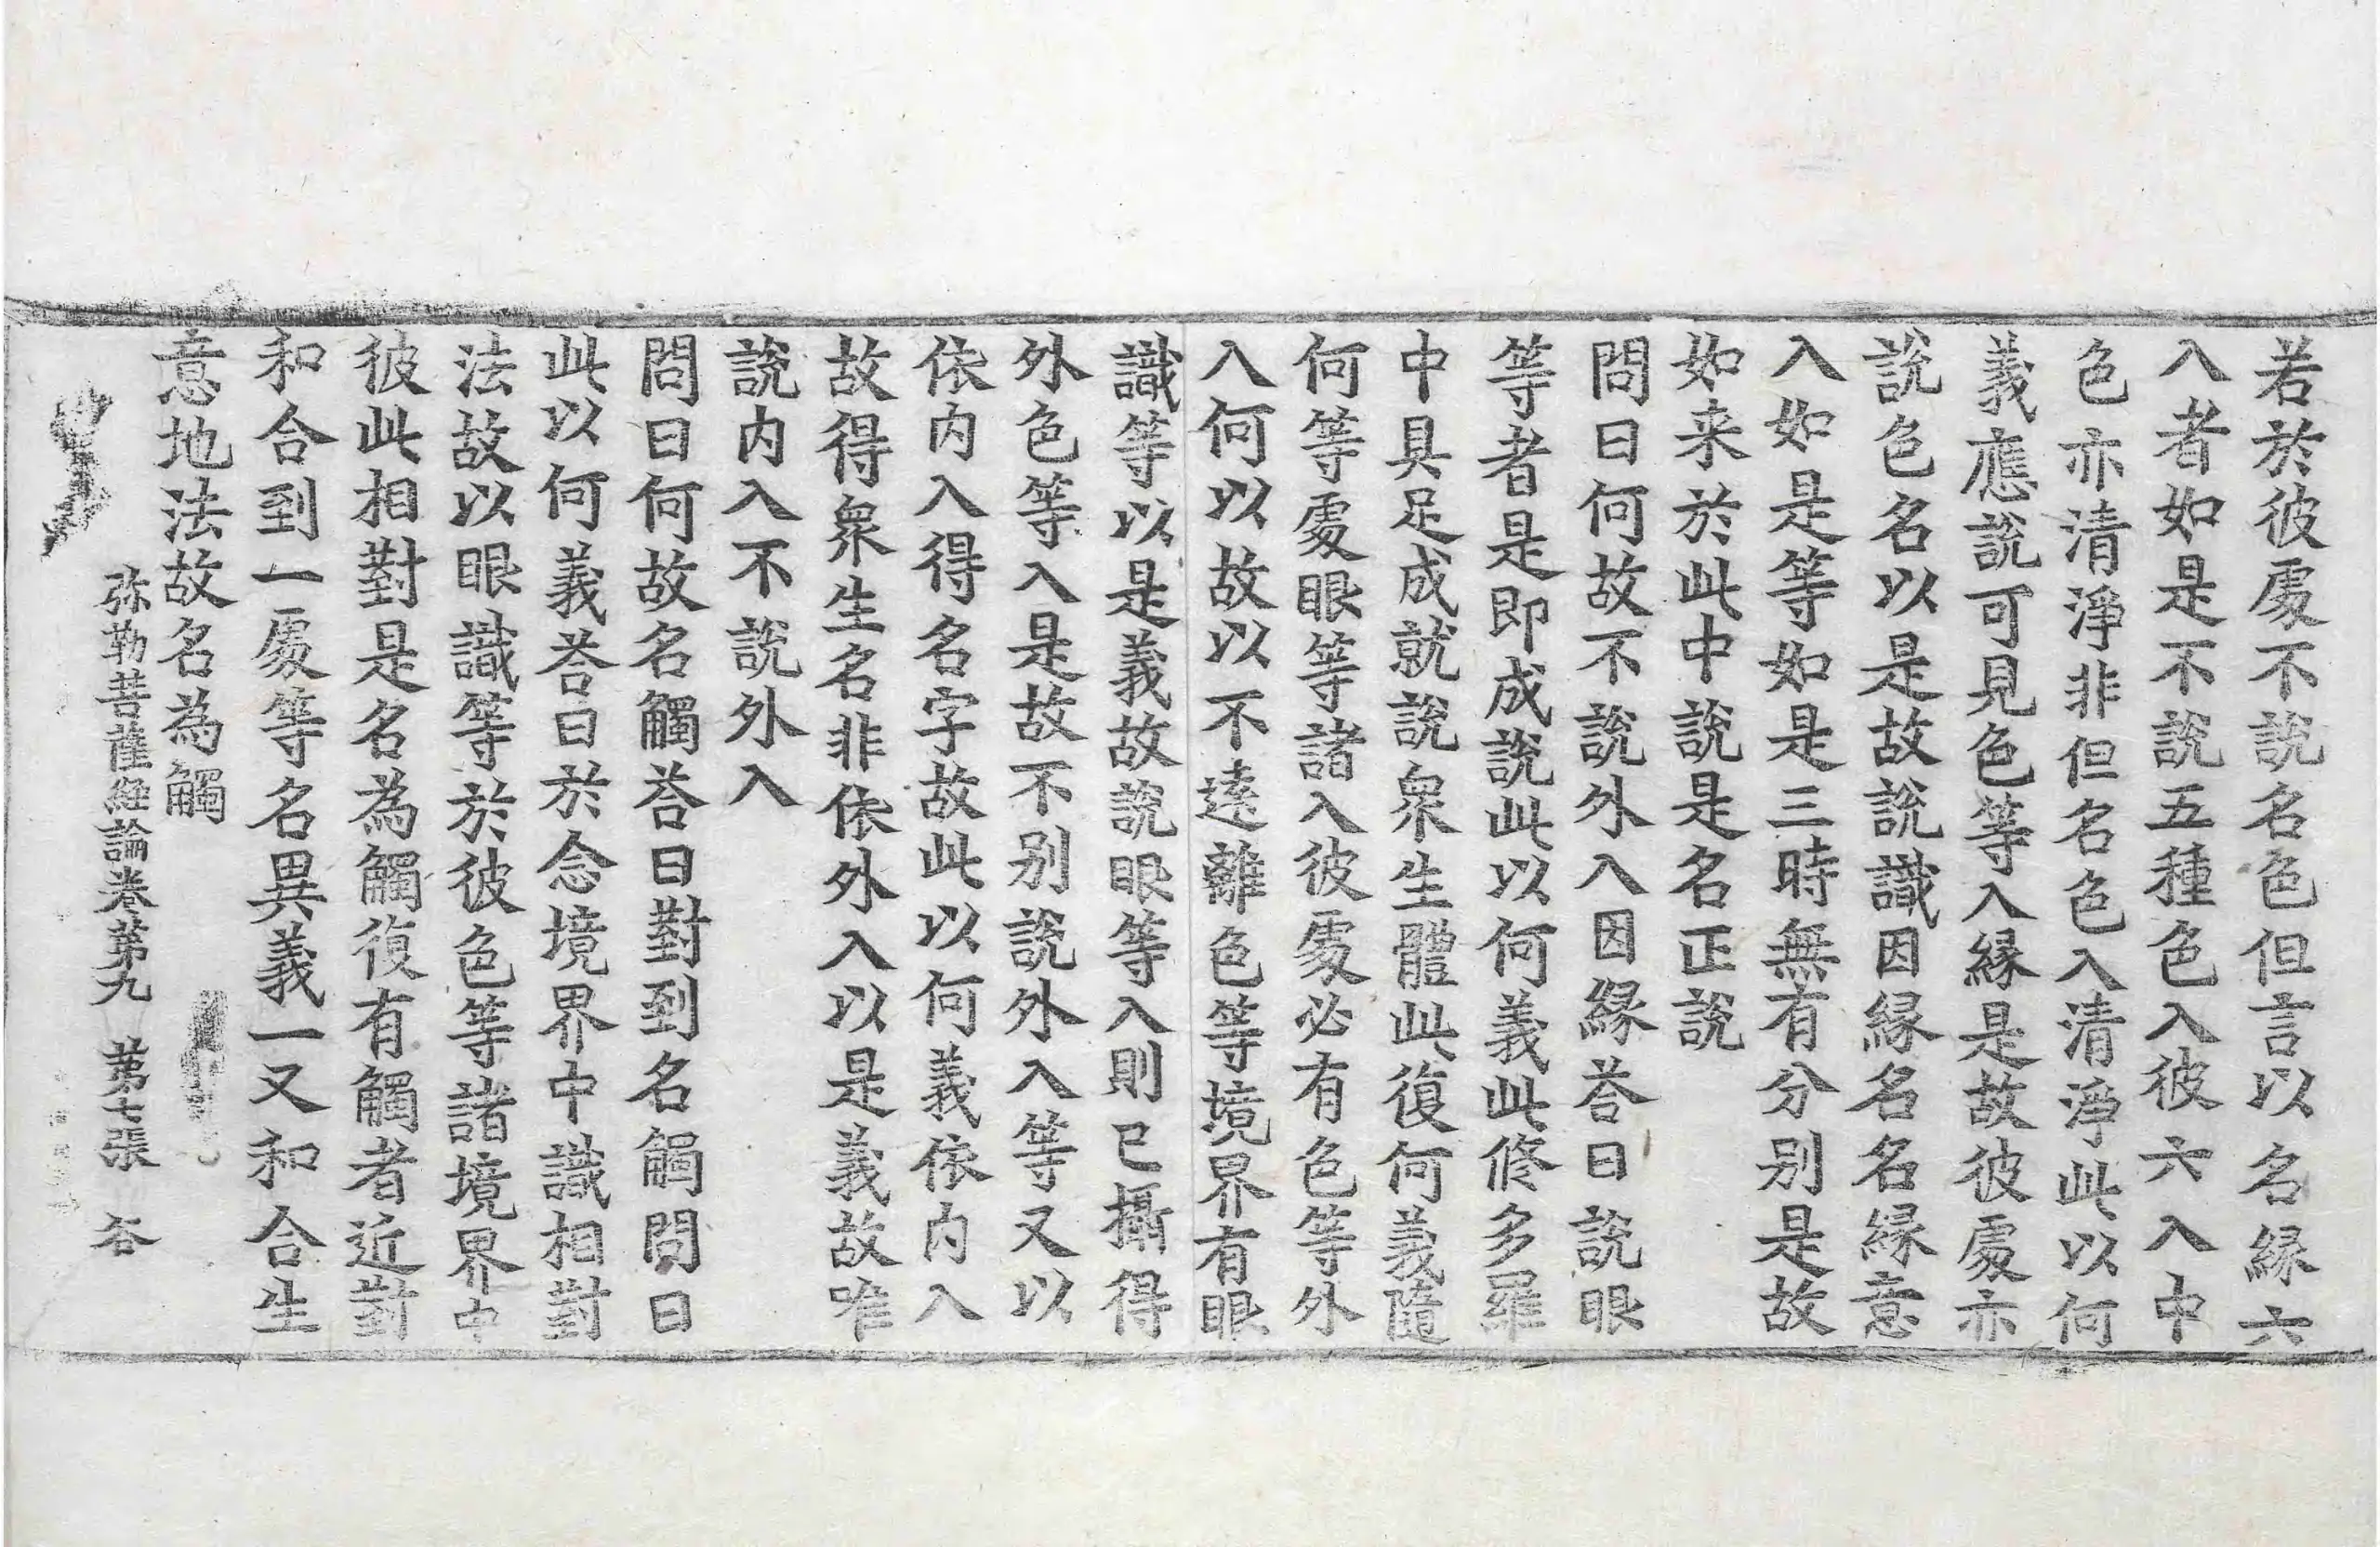 若於彼處不說名色但言以名縁六
入者如是不說五種色入彼六入中
色亦清淨非但名色入清淨此以何
義應說可見色等入縁是故彼處亦
說色名以是故說識因縁名名縁意
入如是等如是三時無有分别是故
如来於此中說是名正說
問曰何故不說外入因縁荅曰說眼
等者是即成說此以何義此修多羅
中具足成就說衆生體此復何義隨
何等處眼等諸入彼處必有色等外
入何以故以不遠離色等境界有眼
識等以是義故說眼等入則已攝得
外色等入是故不别說外入等又以
依内入得名字故此以何義依内入
故得衆生名非依外入以是義故唯
說内入不說外入
問曰何故名觸荅曰對到名觸問曰
此以何義荅曰於念境界中識相對
法故以眼識等於彼色等諸境界中
彼此相對是名為觸復有觸者近對
和合到一處等名異義一又和合生
意地法故名為觸
弥勒菩薩經論卷第九 第七張 谷